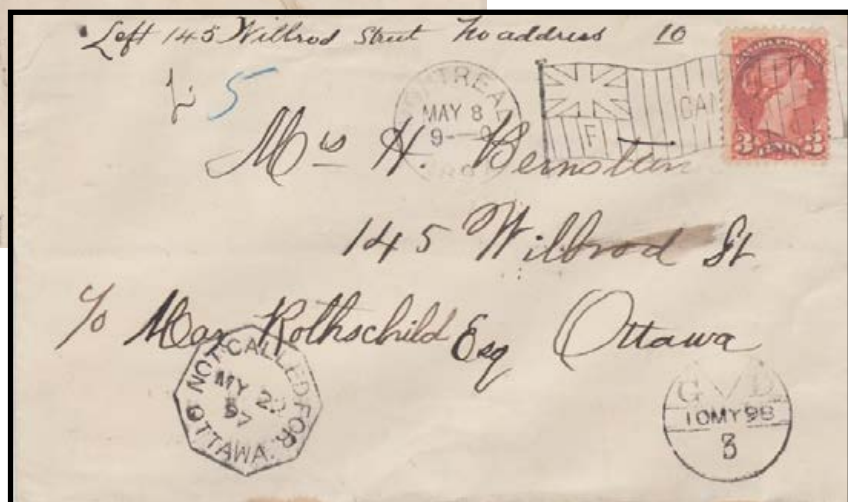 Left 145 Willrod Street no address 10
L 5
MONTREAL
MAY 8
9-
F
CAN
CANADA POSTAGE
3 CENTS 3
Mrs H. Bernstein
145 Wilbrod St
c/o Max Rothschild Esq Ottawa
NOT CALLED FOR
MY 22
97
OTTAWA
G D
10 MY 98
3